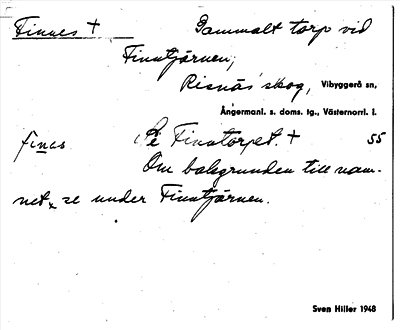 Finnes + Gammalt torp vid
Finntjärnen,
Risnäs skog, Vibyggerå sn,
Ångermanl. s. doms. tg., Västernorrl. l.
fines Se Finntorpet. + 55
Om bakgrunden till nam-
net, se under Finntjärnen.
Sven Hiller 1948